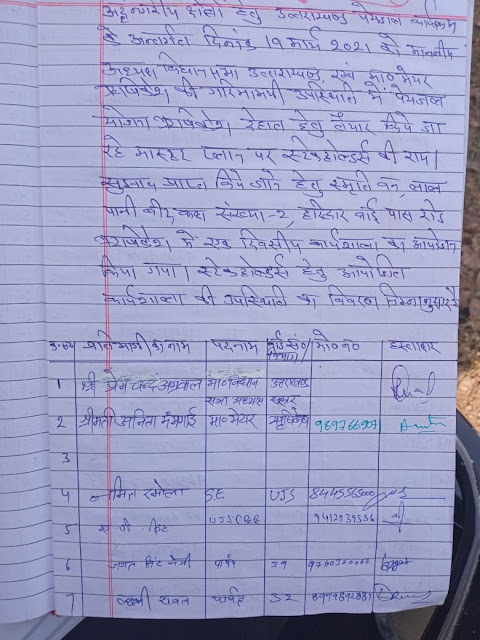 अर्द्धनगरीय क्षेत्रों हेतु उत्तराखण्ड पेयजल कार्यक्रम
के अन्तर्गत दिनांक 19 मार्च 2021 को माननीय
अध्यक्ष विधानसभा उत्तराखण्ड, एवं मा० मेयर
ऋषिकेश की गरिमामयी उपस्थिति में पेयजल
योजना ऋषिकेश देहात हेतु तैयार किये जा
रहे मास्टर प्लान पर स्टेकहोल्डर्स की राय/
सुझाव प्राप्त किये जाने हेतु स्मृति वन, लाल
पानी बीट, कक्ष संख्या-2, हरिद्वार बाई पास रोड
ऋषिकेश में एक दिवसीय कार्यशाला का आयोजन
किया गया। स्टेकहोल्डर्स हेतु आयोजित
कार्यशाला की उपस्थिति का विवरण निम्नानुसार है
प्रतिभागी का नाम पदनाम वार्ड सं०/ मो० न० हस्ताक्षर
1 श्री प्रेम चन्द अग्रवाल मा० विधान उत्तराखण्ड
सभा अध्यक्ष
2 श्रीमती अनिता ममगाई मा० मेयर ऋषिकेश
3
4 नमित रमोला SE UJS
5 9412939556
6 जगत सिंह नेगी पार्षद 39
7 लक्ष्मी रावत पार्षद 32